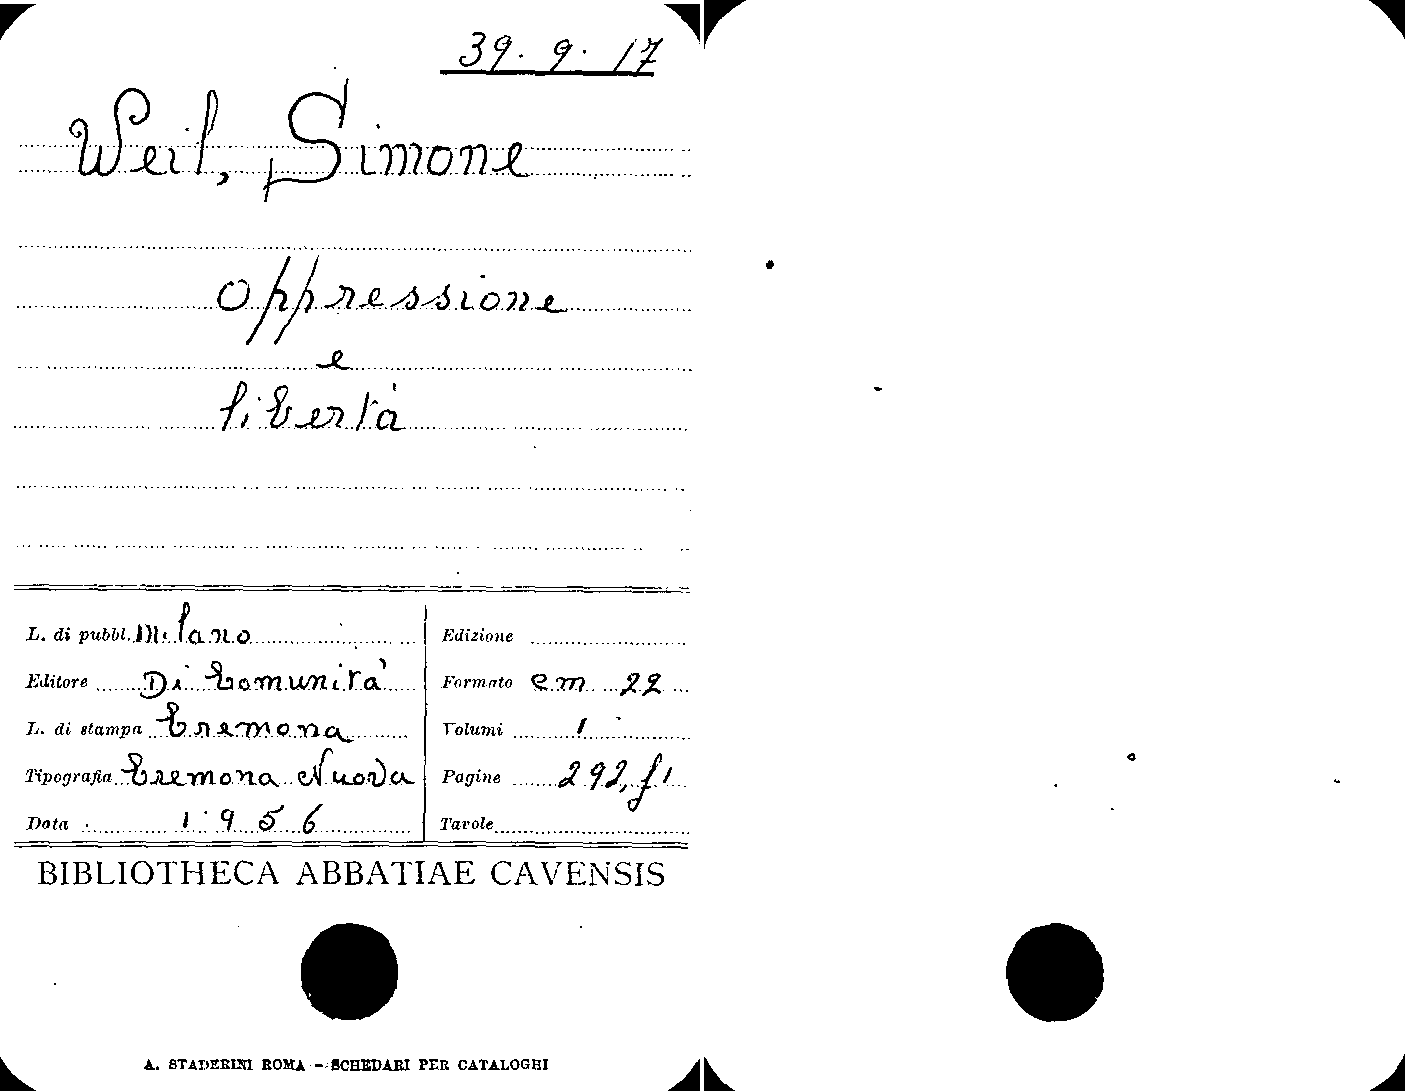 39. 9. 17
Weil, Simone
oppressione
e
libertà
L. di pubbl. Milano
Editore Di Comunità
L. di stampa Cremona
Tipografia Cremona Nuova
Data 1956
Edizione
Formato cm 22
Volumi 1
Pagine 292, f1
Tavole
BIBLIOTHECA ABBATIAE CAVENSIS
A. STADERINI ROMA - SCHEDARI PER CATALOGHI